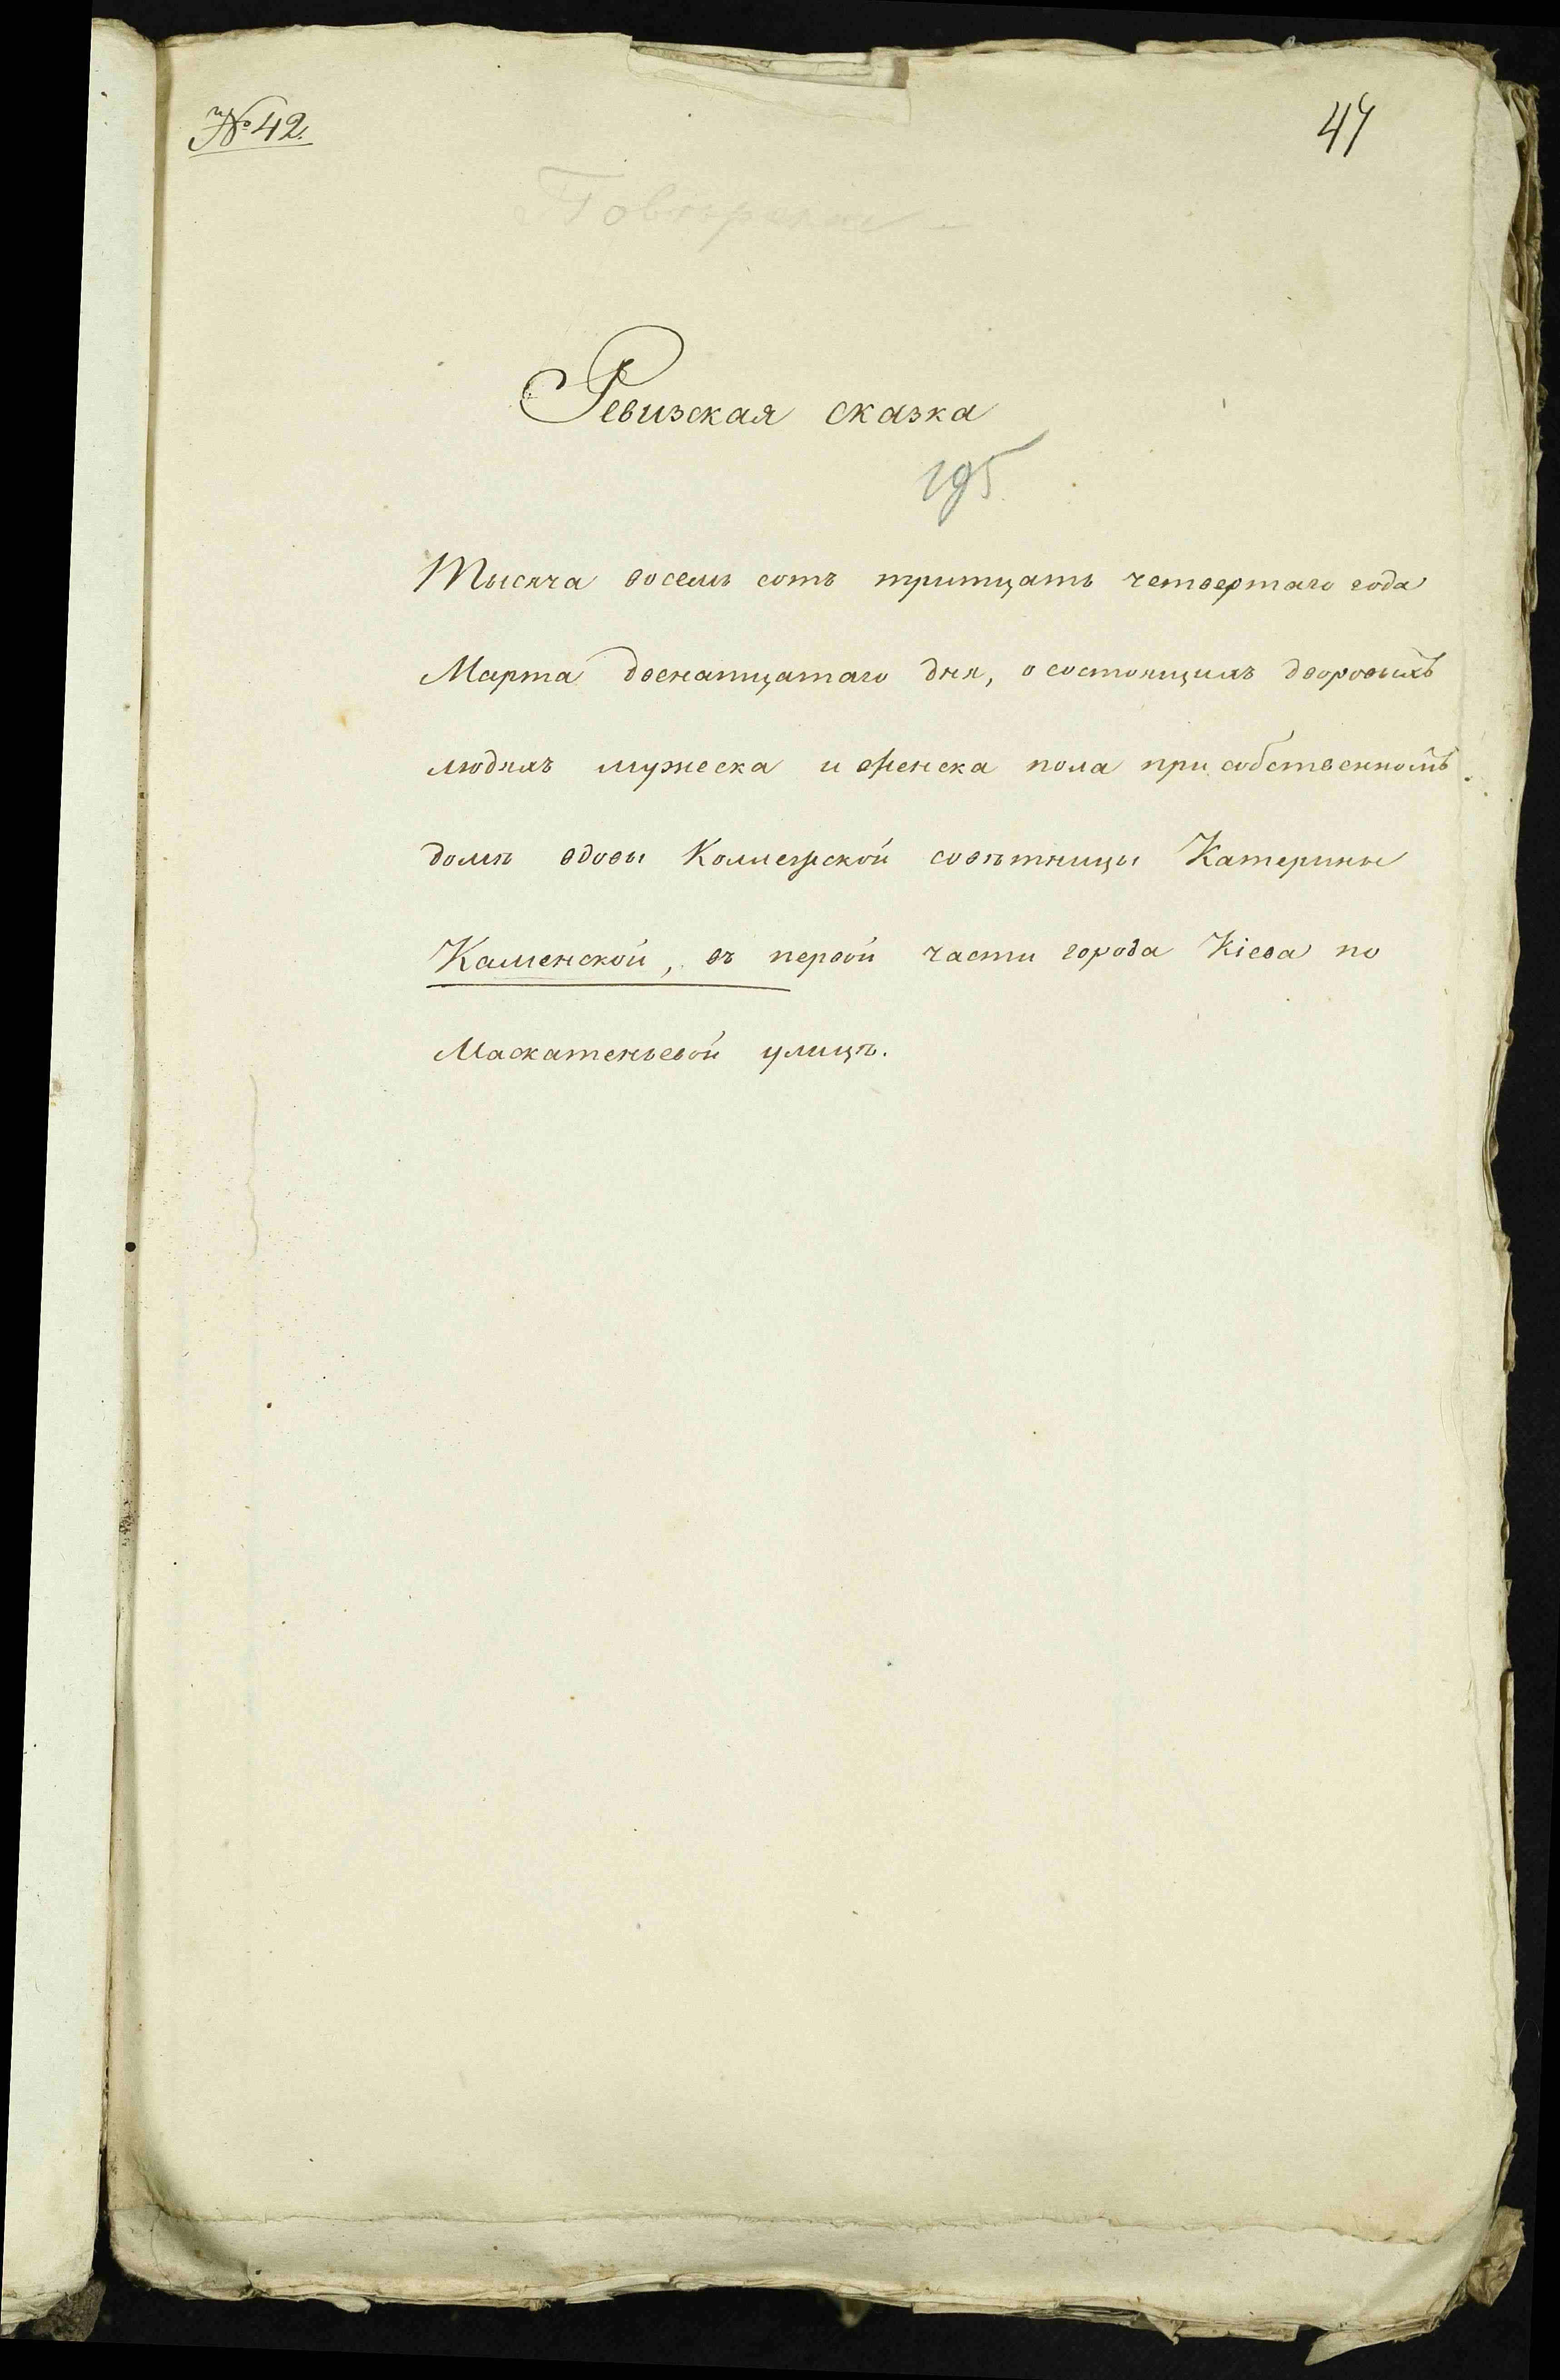 № 42.
47
Повѣрена
Ревизская сказка
195
Тысяча восемь сотъ тритцать четвертаго года
Марта двенатцатаго дня, о состоящихъ дворовыхъ
людяхъ мужеска и женска пола при собственномъ
домѣ вдовы Колежской совѣтницы Катерины
Каменской, въ первой части города Кіева по
Маскатеньевой улицѣ.